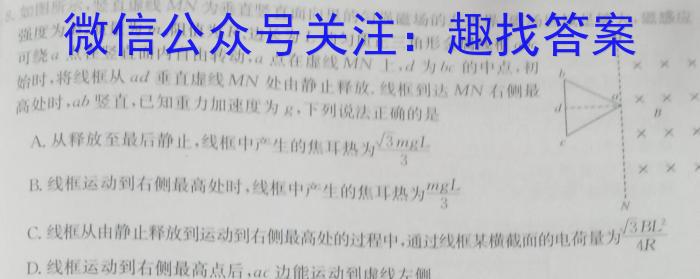 微信公众号关注：趣找答案
8. 如图所示，竖直虚线MN为垂直竖直面向里的匀强磁场的 磁感应
强度为
可绕a点在竖直面内自由转动，a点在虚线MN上，d为bc的中点，初
始时，将线框从ad垂直虚线MN处由静止释放，线框到达MN右侧最
高处时，ab竖直，已知重力加速度为g，下列说法正确的是
A. 从释放至最后静止，线框中产生的焦耳热为√3mgL/3
B. 线框运动到右侧最高处时，线框中产生的焦耳热为mgL/3
C. 线框从由静止释放到运动到右侧最高处的过程中，通过线框某横截面的电荷量为√3BL²/4R
D. 线框运动到右侧最高点后，ac边能运动到虚线左侧
b
d
c
a
B
N